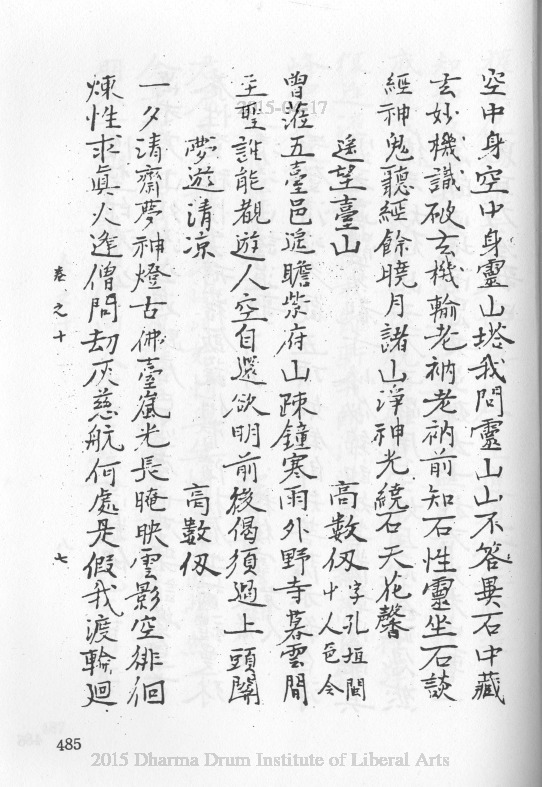 空中身空中身靈山塔我問靈山山不答異石中藏
玄妙機識破玄機輸老衲老衲前知石性靈坐石談
經神鬼聽經餘曉月諸山淨神光繞石天花馨
遥望臺山
高數仞 字孔垣閩
中人邑令
曽遊五臺邑遥瞻紫府山踈鐘寒雨外野寺暮雲間
至聖誰能覩遊人空自還欲明前後偈須過上頭關
夢遊清凉
高數仞
一夕清齋夢神燈古佛臺嵐光長晻映雲影空徘徊
煉性求眞火逢僧問刼灰慈航何處是假我渡輪迴
卷之十
七
485
2015-04-17
2015 Dharma Drum Institute of Liberal Arts